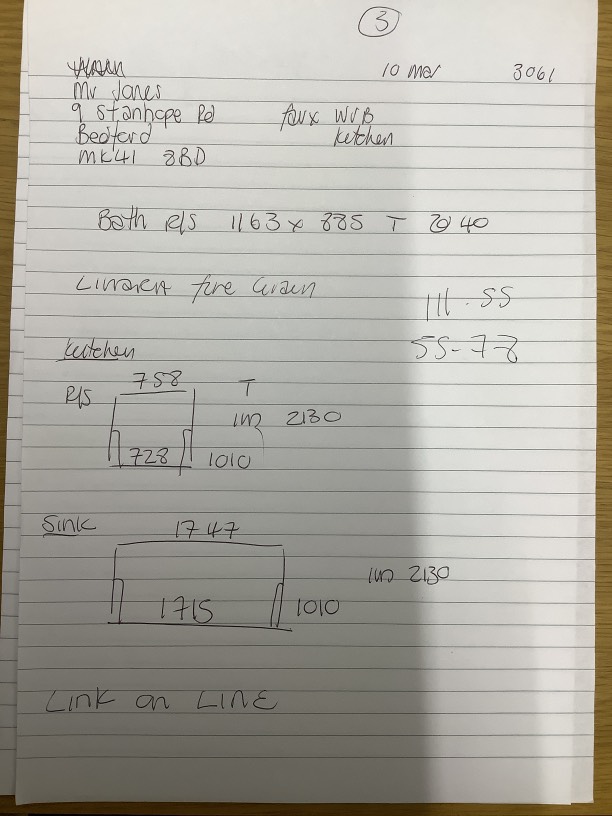 3
10 Mar 3061
Mr Jones
9 Stanhope Rd faux WVB
Bedford kitchen
MK41 8BD
Bath R/S 1163 x 885 T @ 40
fine Grain
111.55
55-78
kitchen
758
R/S T
2130
728 1010
Sink 1747
2130
1715 1010
Link on LINE